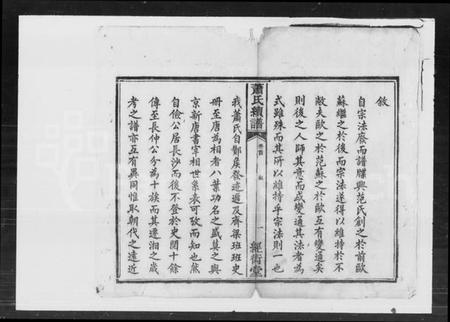 敘
自宗法廢而譜牒興范氏創之於前歐
蘇繼之於後而宗法遂得以維持於不
敝夫歐之於范蘇之於歐互有變通矣
則後之人師其意而或變通其法者為
式雖殊而其所以維持乎宗法則一也
蕭氏續譜
卷首
敘
一
經術堂
我蕭氏自酇侯發迹遞及齊梁班班史
冊至唐為相者八葉功名之盛莫之與
京新唐書宰相世系表可攷而知也然
自儉公居長沙而後不登於史閱十餘
傳至長仲公分為十族而其遷湘之歲
考之譜亦互有異同惟取朝代之遠近